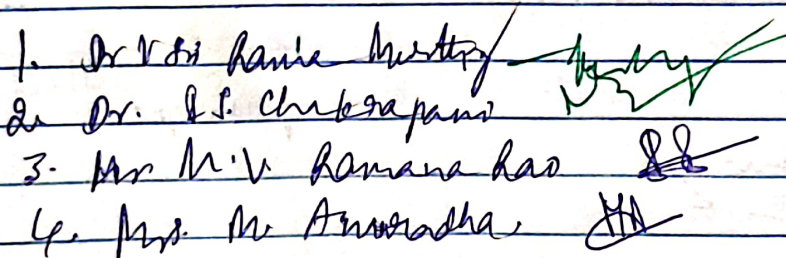 1. Dr V Sri Rama Murthy
2. Dr. P.S. Chakrapani
3. Mr M.V. Ramana Rao
4. Mrs. M. Anuradha.